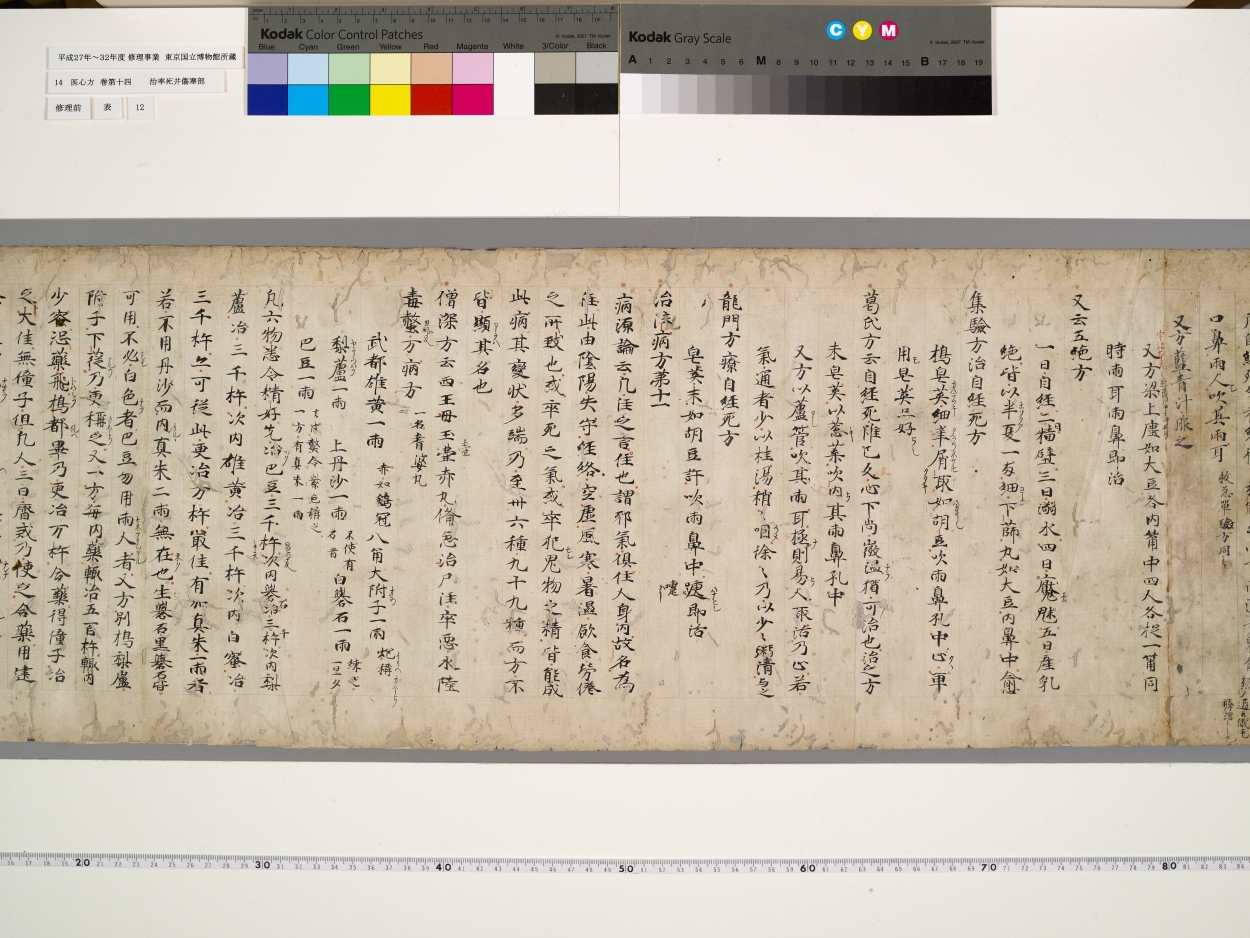 平成27年～32年度 修理事業 東京国立博物館所蔵
14 医心方 巻第十四 治卒死并傷寒部
修理前 表 12
Kodak Color Control Patches
Blue Cyan Green Yellow Red Magenta White 3/Color Black
Kodak Gray Scale
C Y M
A 1 2 3 4 5 6 M 8 9 10 11 12 13 14 15 B 17 18 19
口鼻兩人吹其兩耳
又方藍青汁灌之
又方梁上塵如大豆各内筩中四人各捉一筩同
時兩耳兩鼻即治
又云五絶方
一曰自経二曰墻壁三曰溺水四曰魘魅五曰産乳
絶皆以半夏一分細下篩丸如大豆内鼻中愈
集驗方治自経死方
搗皂莢細辛屑取如胡豆吹兩鼻孔中
用皂莢並好
葛氏方云自経死雖已久心下尚微温猶可治也治之方
末皂莢以葱葉吹内其兩鼻孔中
又方以蘆管吹其兩耳極則易人取活乃止若
氣通者少以桂湯稍咽徐々乃以少々粥清与之
龍門方療自経死方
皂莢末如胡豆許吹兩鼻中嚏即活
治注病方第十一
病源論云凡注之言住也謂邪氣居住人身内故名為
注此由陰陽失守経絡空虚風寒暑濕飲食勞倦
之所致也或卒死之氣或卒犯鬼物之精皆能成
此病其變状多端乃至卅六種九十九種而方不
皆顯其名也
僧深方云西王母玉壷赤丸備急治尸注卒惡水陸
毒螫方病方 一名耆婆丸
武都雄黄一兩 赤如鷄冠 八角大附子一兩 炮称
梨蘆一兩 上丹沙一兩 白礜石一兩 練之一日夕
巴豆一兩
凡六物悉令精好先治巴豆三千杵次内礜石治三千杵次内梨
蘆冶三千杵次内雄黄冶三千杵次内白蜜冶
三千杵亦可従此更治万杵冣佳有加真朱一兩者
若不用丹沙而内真朱二兩無在也
可用不必白色者巴豆勿用兩人者又方別搗梨蘆
附子下篩乃更稱之又一方毎内藥輙冶五百杵輙内
少蜜恐藥飛搗都畢乃更冶万杵令藥得僮子冶
之大佳無僮子但凡人三日齋戒乃使之合藥用建
20 30 40 50 60 70 80